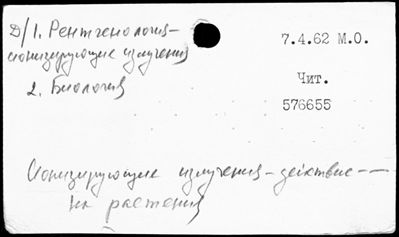 Д/1. Рентгенология-
ионизирующие излучения
2. Биология
7.4.62 М.О.
Чит.
576655
Ионизирующие излучения - действие --
на растения